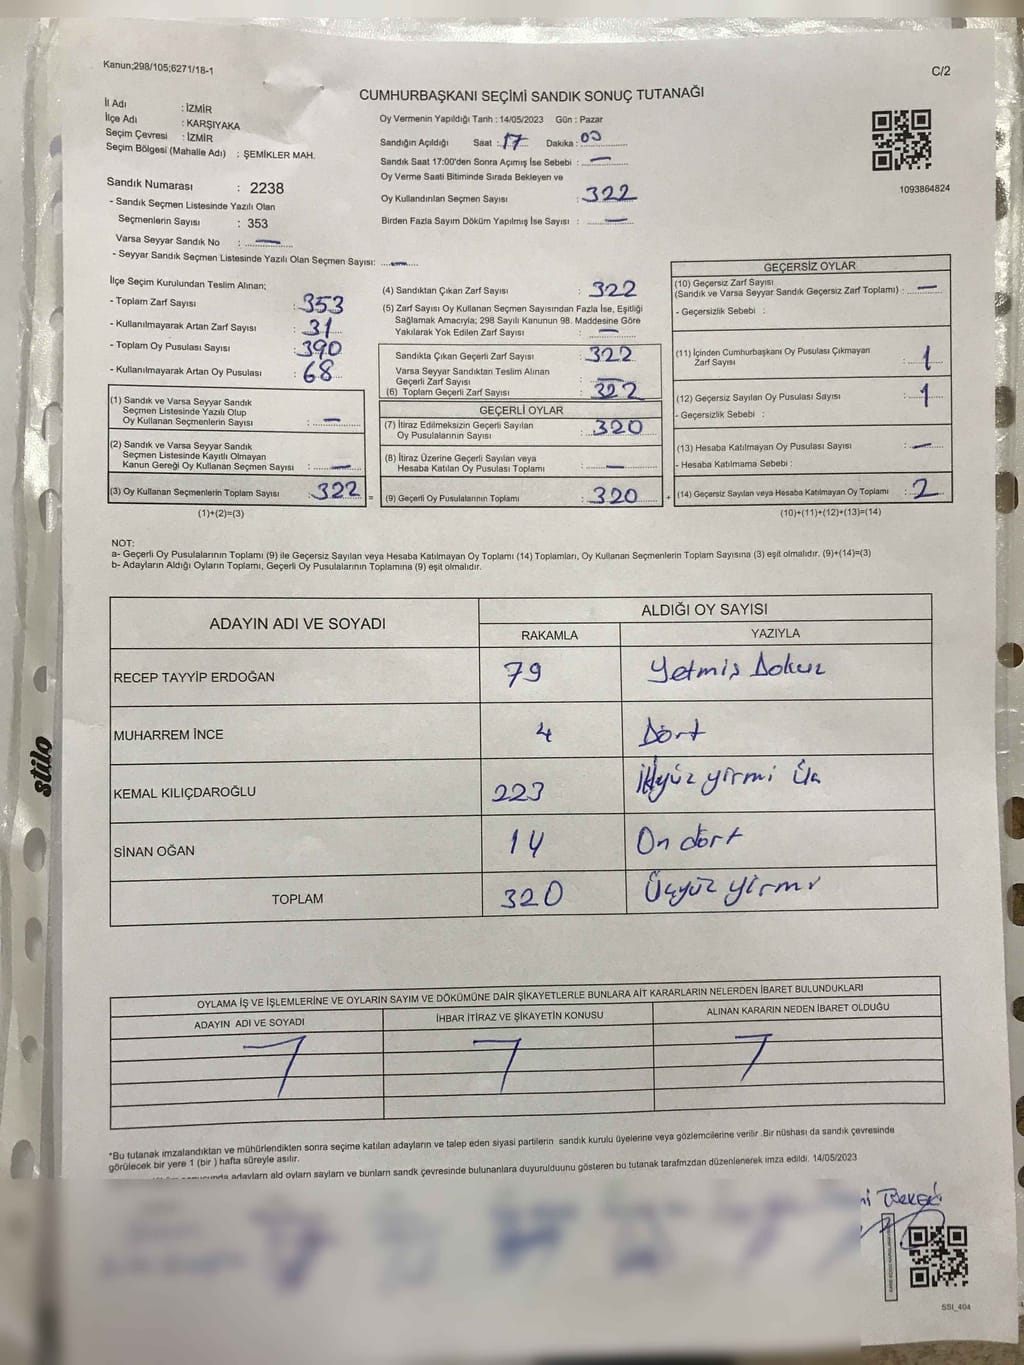 Kanun;298/105;6271/18-1
C/2
CUMHURBAŞKANI SEÇİMİ SANDIK SONUÇ TUTANAĞI
İl Adı : İZMİR
İlçe Adı : KARŞIYAKA
Seçim Çevresi : İZMİR
Seçim Bölgesi (Mahalle Adı) : ŞEMİKLER MAH.
Oy Vermenin Yapıldığı Tarih : 14/05/2023 Gün : Pazar
Sandığın Açıldığı Saat : 17 Dakika : 00
Sandık Saat 17:00'den Sonra Açımış İse Sebebi : —
Oy Verme Saati Bitiminde Sırada Bekleyen ve
Oy Kullandırılan Seçmen Sayısı : 322
Birden Fazla Sayım Döküm Yapılmış İse Sayısı : —
1093864824
Sandık Numarası : 2238
- Sandık Seçmen Listesinde Yazılı Olan
Seçmenlerin Sayısı : 353
Varsa Seyyar Sandık No : —
- Seyyar Sandık Seçmen Listesinde Yazılı Olan Seçmen Sayısı: —
İlçe Seçim Kurulundan Teslim Alınan;
- Toplam Zarf Sayısı : 353
- Kullanılmayarak Artan Zarf Sayısı : 31
- Toplam Oy Pusulası Sayısı : 390
- Kullanılmayarak Artan Oy Pusulası : 68
(1) Sandık ve Varsa Seyyar Sandık
Seçmen Listesinde Yazılı Olup
Oy Kullanan Seçmenlerin Sayısı : —
(2) Sandık ve Varsa Seyyar Sandık
Seçmen Listesinde Kayıtlı Olmayan
Kanun Gereği Oy Kullanan Seçmen Sayısı : —
(3) Oy Kullanan Seçmenlerin Toplam Sayısı : 322 =
(1)+(2)=(3)
(4) Sandıktan Çıkan Zarf Sayısı : 322
(5) Zarf Sayısı Oy Kullanan Seçmen Sayısından Fazla İse, Eşitliği
Sağlamak Amacıyla; 298 Sayılı Kanunun 98. Maddesine Göre
Yakılarak Yok Edilen Zarf Sayısı : —
Sandıkta Çıkan Geçerli Zarf Sayısı : 322
Varsa Seyyar Sandıktan Teslim Alınan
Geçerli Zarf Sayısı : —
(6) Toplam Geçerli Zarf Sayısı : 322
GEÇERLİ OYLAR
(7) İtiraz Edilmeksizin Geçerli Sayılan
Oy Pusulalarının Sayısı : 320
(8) İtiraz Üzerine Geçerli Sayılan veya
Hesaba Katılan Oy Pusulası Toplamı : —
(9) Geçerli Oy Pusulalarının Toplamı : 320 +
GEÇERSİZ OYLAR
(10) Geçersiz Zarf Sayısı
(Sandık ve Varsa Seyyar Sandık Geçersiz Zarf Toplamı) : —
- Geçersizlik Sebebi :
(11) İçinden Cumhurbaşkanı Oy Pusulası Çıkmayan
Zarf Sayısı : 1
(12) Geçersiz Sayılan Oy Pusulası Sayısı : 1
- Geçersizlik Sebebi :
(13) Hesaba Katılmayan Oy Pusulası Sayısı : —
- Hesaba Katılmama Sebebi :
(14) Geçersiz Sayılan veya Hesaba Katılmayan Oy Toplamı : 2
(10)+(11)+(12)+(13)=(14)
NOT:
a- Geçerli Oy Pusulalarının Toplamı (9) ile Geçersiz Sayılan veya Hesaba Katılmayan Oy Toplamı (14) Toplamları, Oy Kullanan Seçmenlerin Toplam Sayısına (3) eşit olmalıdır. (9)+(14)=(3)
b- Adayların Aldığı Oyların Toplamı, Geçerli Oy Pusulalarının Toplamına (9) eşit olmalıdır.
ADAYIN ADI VE SOYADI ALDIĞI OY SAYISI
RAKAMLA YAZIYLA
RECEP TAYYİP ERDOĞAN 79 Yetmiş Dokuz
MUHARREM İNCE 4 Dört
KEMAL KILIÇDAROĞLU 223 İkiyüz yirmi Üç
SİNAN OĞAN 14 On dört
TOPLAM 320 Üçyüz yirmi
stilo
OYLAMA İŞ VE İŞLEMLERİNE VE OYLARIN SAYIM VE DÖKÜMÜNE DAİR ŞİKAYETLERLE BUNLARA AİT KARARLARIN NELERDEN İBARET BULUNDUKLARI
ADAYIN ADI VE SOYADI İHBAR İTİRAZ VE ŞİKAYETİN KONUSU ALINAN KARARIN NEDEN İBARET OLDUĞU
*Bu tutanak imzalandıktan ve mühürlendikten sonra seçime katılan adayların ve talep eden siyasi partilerin sandık kurulu üyelerine veya gözlemcilerine verilir .Bir nüshası da sandık çevresinde
görülecek bir yere 1 (bir ) hafta süreyle asılır.
adayların ald oylarn saylarn ve bunlarn sandk çevresinde bulunanlara duyurulduunu gösteren bu tutanak tarafmzdan düzenlenerek imza edildi. 14/05/2023
SSI_404